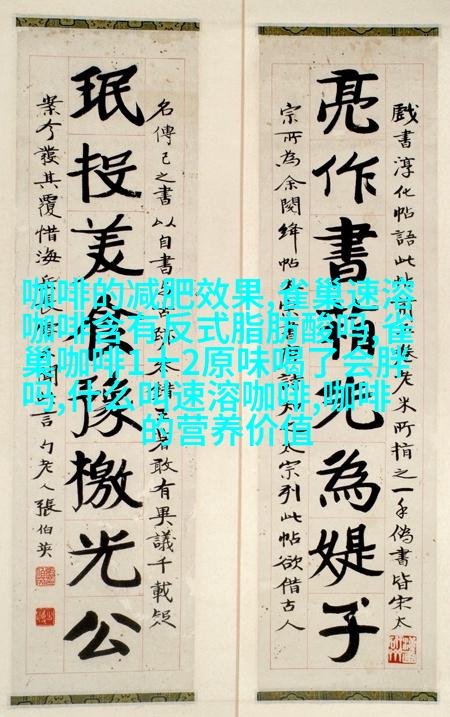 咖啡的减肥效果,雀巢速溶
咖啡含有反式脂肪酸吗,雀
巢咖啡1十2原味喝了会胖
吗,什么叫速溶咖啡,咖啡
的营养价值
戲書淳化帖語此老米所指之一手偽書皆宋太
亮作書尤為媞子
宗所為余閱絳帖太宗列此帖欲借古人
名傳己之書以自書者敢有異議千載疑
珉投美豫檄光公
案今發其覆惜海言勺老人張伯英